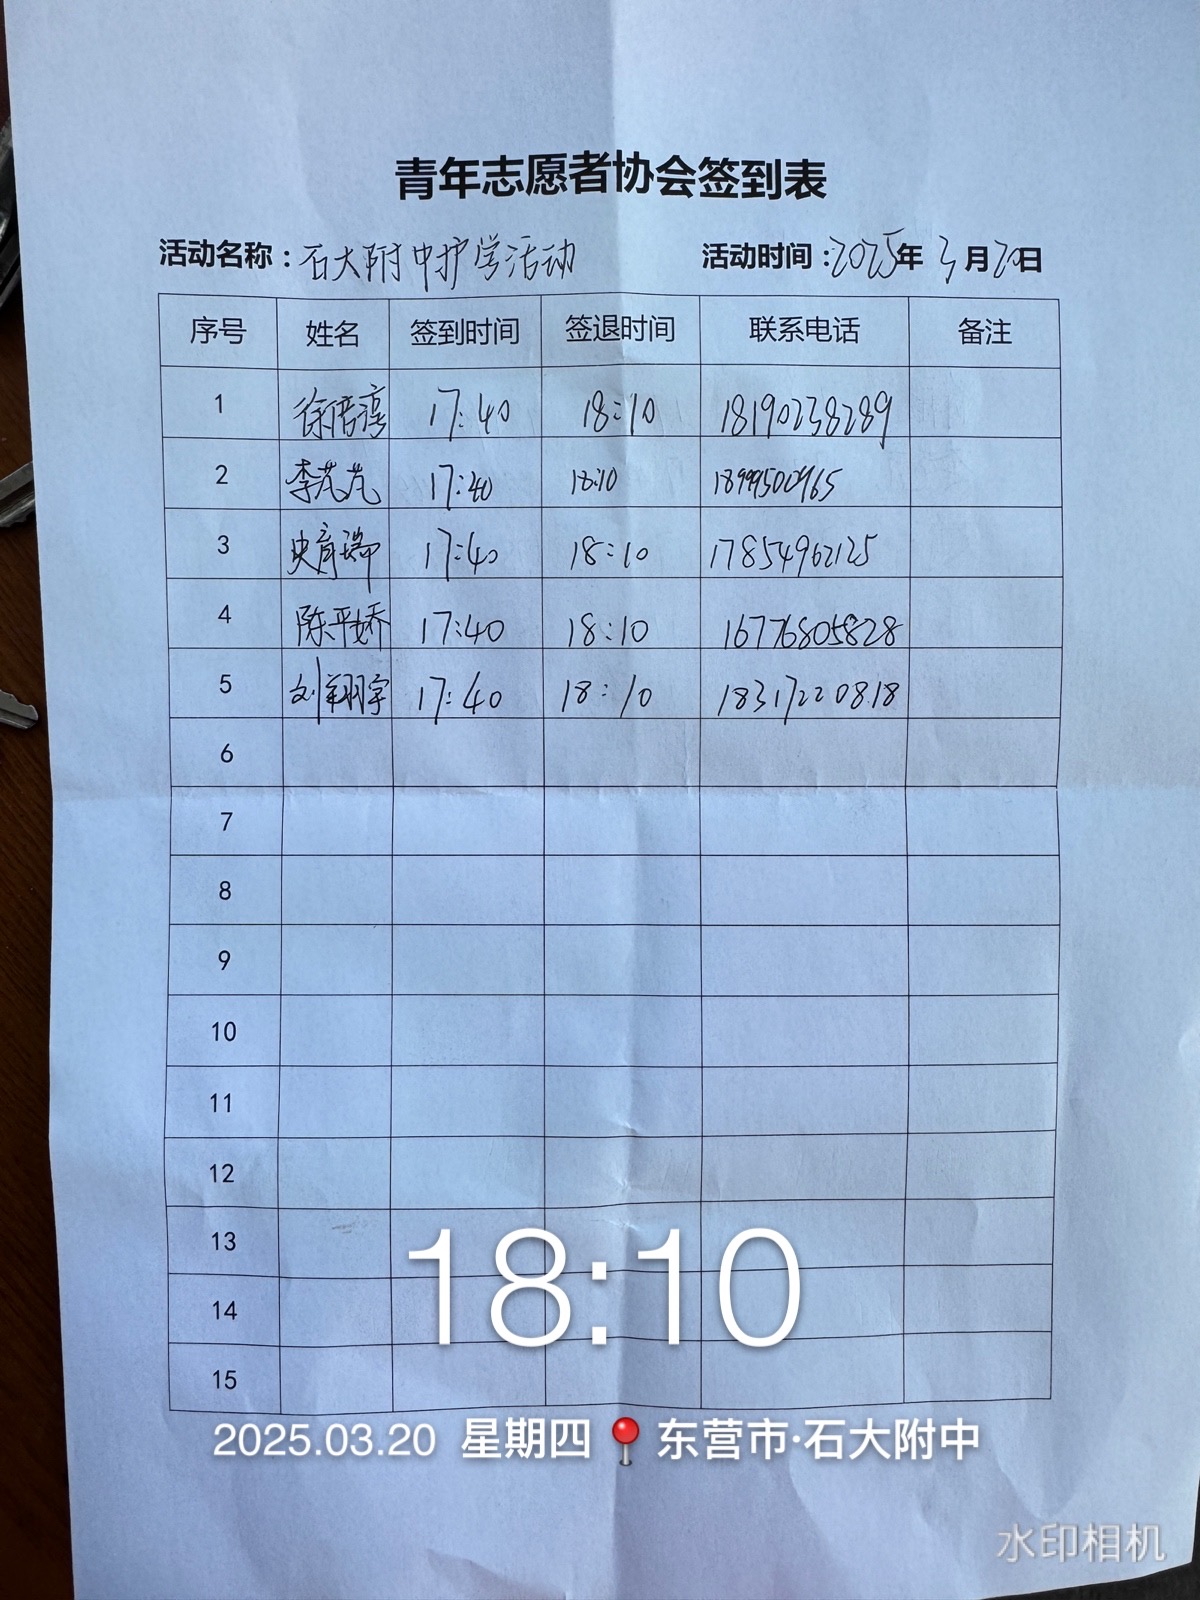 青年志愿者协会签到表
活动名称：石大附中护学活动 活动时间：2025年 3月20日
序号 姓名 签到时间 签退时间 联系电话 备注
1 徐倍 17:40 18:10 18190238289
2 李芃芃 17:40 18:10 18999500965
3 史育瑞 17:40 18:10 17854962125
4 陈平娇 17:40 18:10 16776805828
5 刘翔宇 17:40 18:10 18317220818
6
7
8
9
10
11
12
13
14
15
18:10
2025.03.20 星期四 东营市·石大附中
水印相机